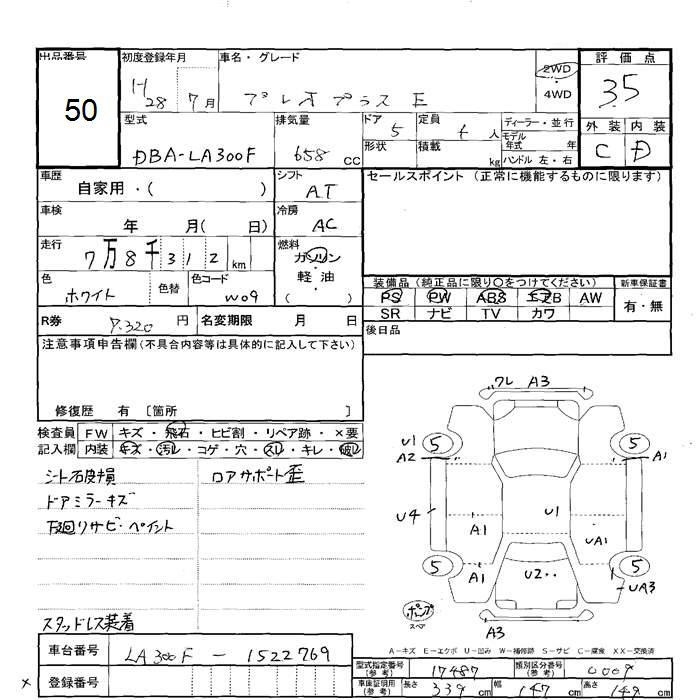 出品番号 初度登録年月 車名・グレード 評価点
50 H28 7月 プレオプラス E 2WD・4WD 35
型式 排気量 ドア 定員 ディーラー・並行 外装 内装
DBA-LA300F 658cc 5 4人 モデル年式 年 C D
形状 積載 kg ハンドル 左・右
車歴 自家用・( ) シフト AT セールスポイント(正常に機能するものに限ります)
車検 年 月( 日) 冷房 AC
走行 7万8千312km 燃料 ガソリン・軽油( )
色 ホワイト 色替 色コード W09
装備品(純正品に限り〇をつけてください) 新車保証書
PS PW ABS エアB AW 有・無
SR ナビ TV カワ
R券 7.320円 名変期限 月 日 後日品
注意事項申告欄(不具合内容等は具体的に記入して下さい)
修復歴 有 [箇所 ]
検査員 FW キズ・飛石・ヒビ割・リペア跡・×要
記入欄 内装 キズ・汚レ・コゲ・穴・スレ・キレ・破レ
シート石皮損 ロアサポート歪
ドアミラーキズ
下廻りサビ・ペイント
スタッドレス装着
ワレ A3
U1 5 5
A2 A1
U4 A1 U1 UA1
5 A1 U2.. 5
UA3
ポンプ
スペア
A3
A-キズ E-エクボ U-凹み W-補修跡 S-サビ C-腐食 XX-交換済
車台番号 LA300F-1522769
型式指定番号(参考) 17487 類別区分番号(参考) 0009
× 登録番号
車庫証明用(参考) 長さ 339cm 幅 147cm 高さ 149cm